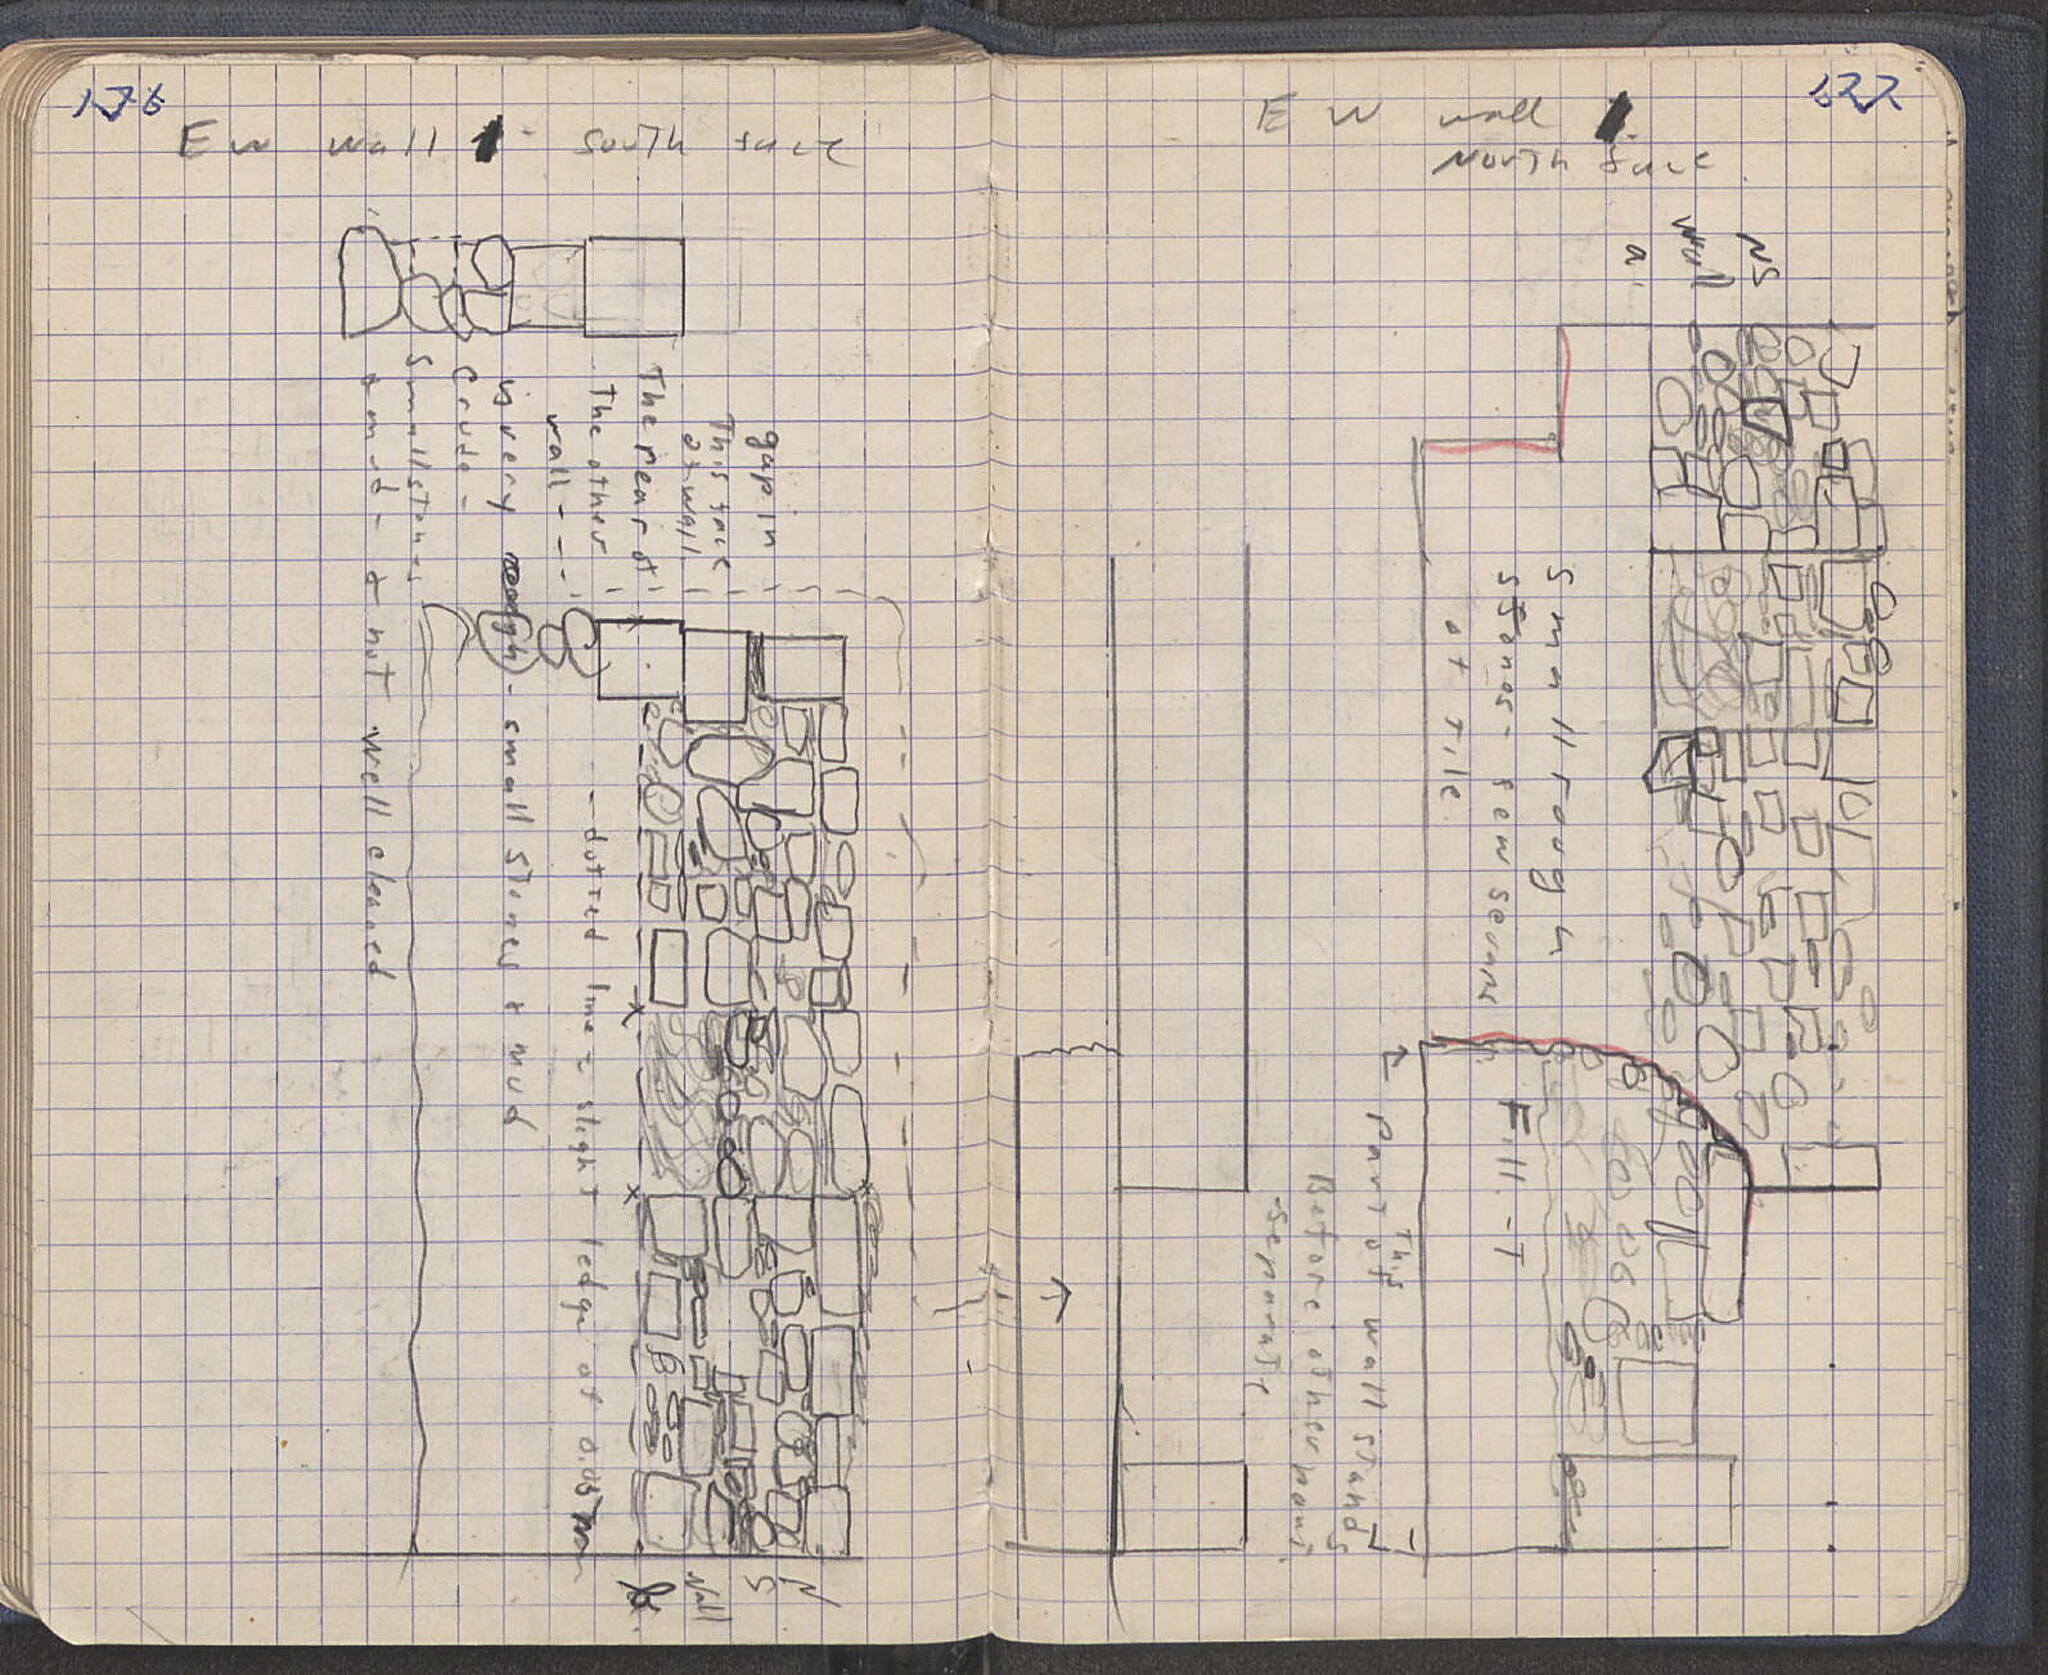 176
EW wall 1 - South face
gap in
This face
of wall.
The rear of
The other
wall ----
is very rough - small stones + mud
crude -
Small stones
+ mud - + not well cleaned
-- dotted line = slight ledge of 0.05 m
NS
Wall
177
EW wall 1.
North face.
NS
Wall
a.
Small rough
stones - few sevans
of tile.
Fill - T
← Part of This wall stands →
Before other part.
- Separate.